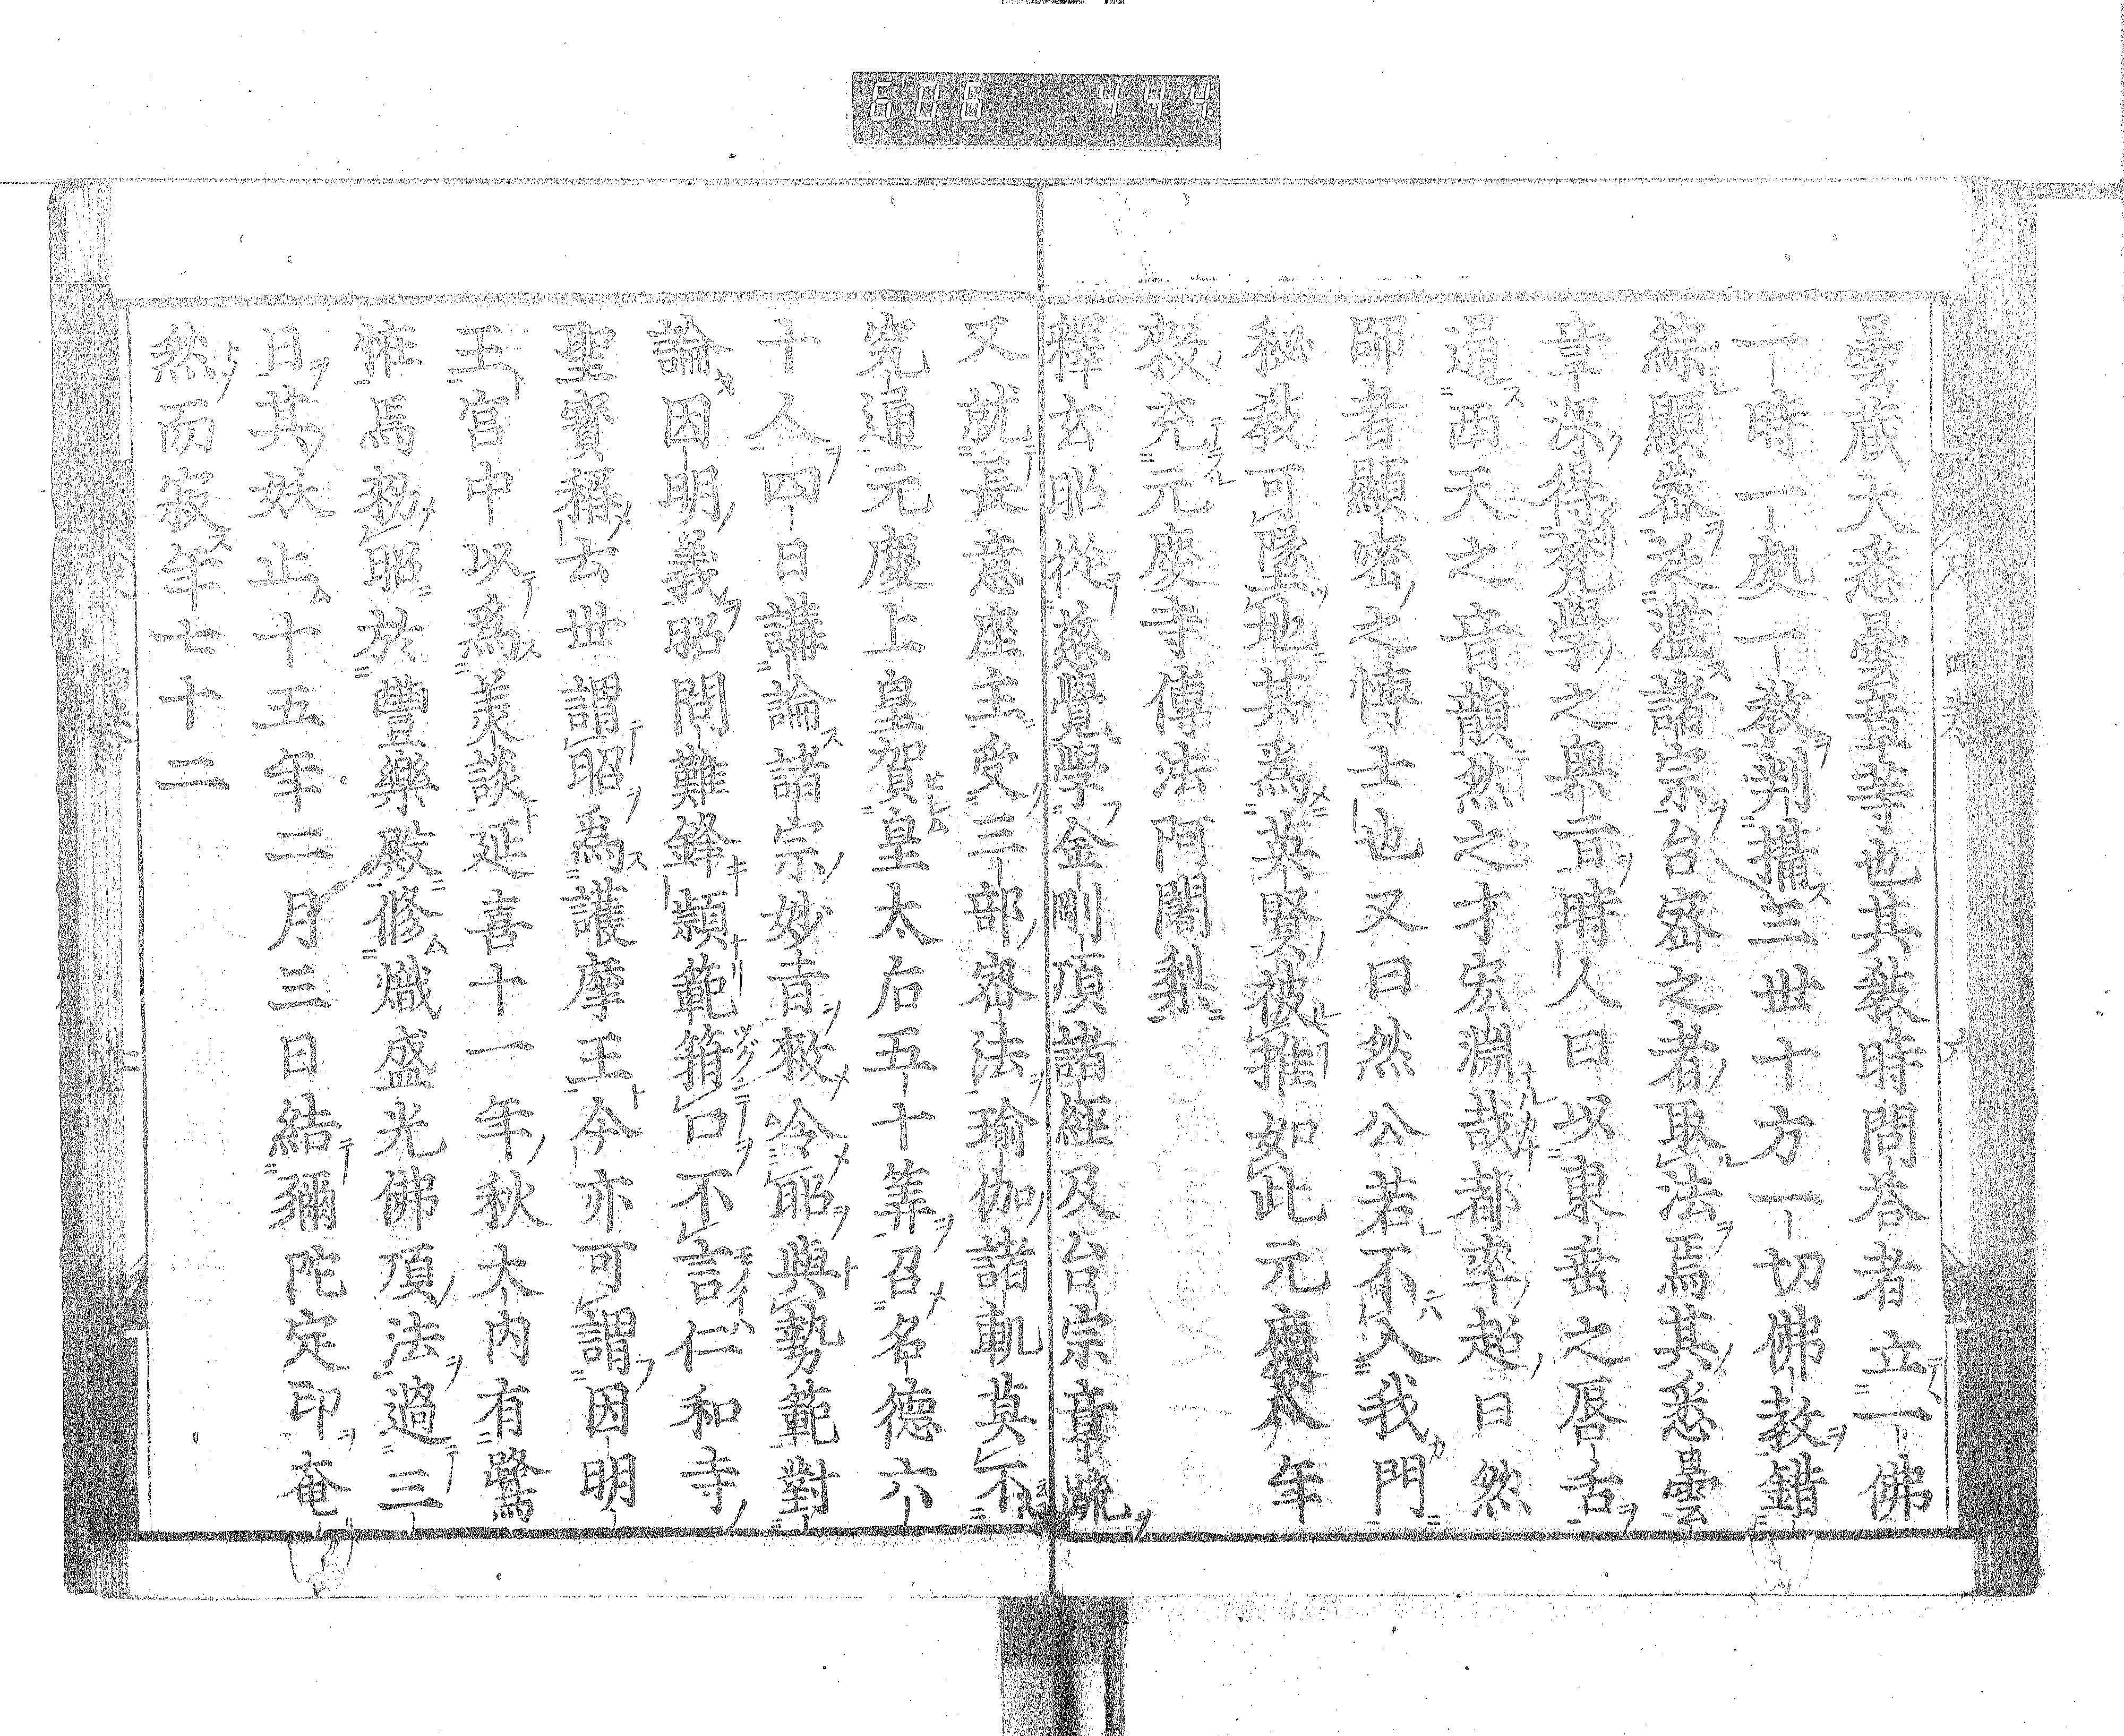 606 444
曇蔵大悉曇章等也其教時問荅者立一佛
一時一處一教判攝三世十方一切佛教錯
綜顯密泛濫諸宗台密之者取法焉其悉曇
章深得梵學之奧㫖時人曰以東垂之唇舌
通西天之音韻然之才宏淵哉都率超曰然
師者顯密之博士也又曰然公若不入我門
秘教可墜地其為英賢彼推如此元慶八年
敕充元慶寺傳法阿闍梨
釋玄昭從慈覺學金剛頂諸經及台宗章疏
又就長意座主受三部密法瑜伽諸軌莫不
究通元慶上皇賀皇太后五十筭召名德六
十人四日講論諸宗妙㫖敕令昭與勢範對
論因明義昭問難鋒頴範箝口不言仁和寺
聖寶稱去世謂昭為護摩王今亦可謂因明
王宮中以為美談延喜十一年秋大内有鷺
惟焉敕昭於豐樂殿修熾盛光佛頂法過三
日其妖止十五年二月三日結彌陀定印奄
然而寂年七十二